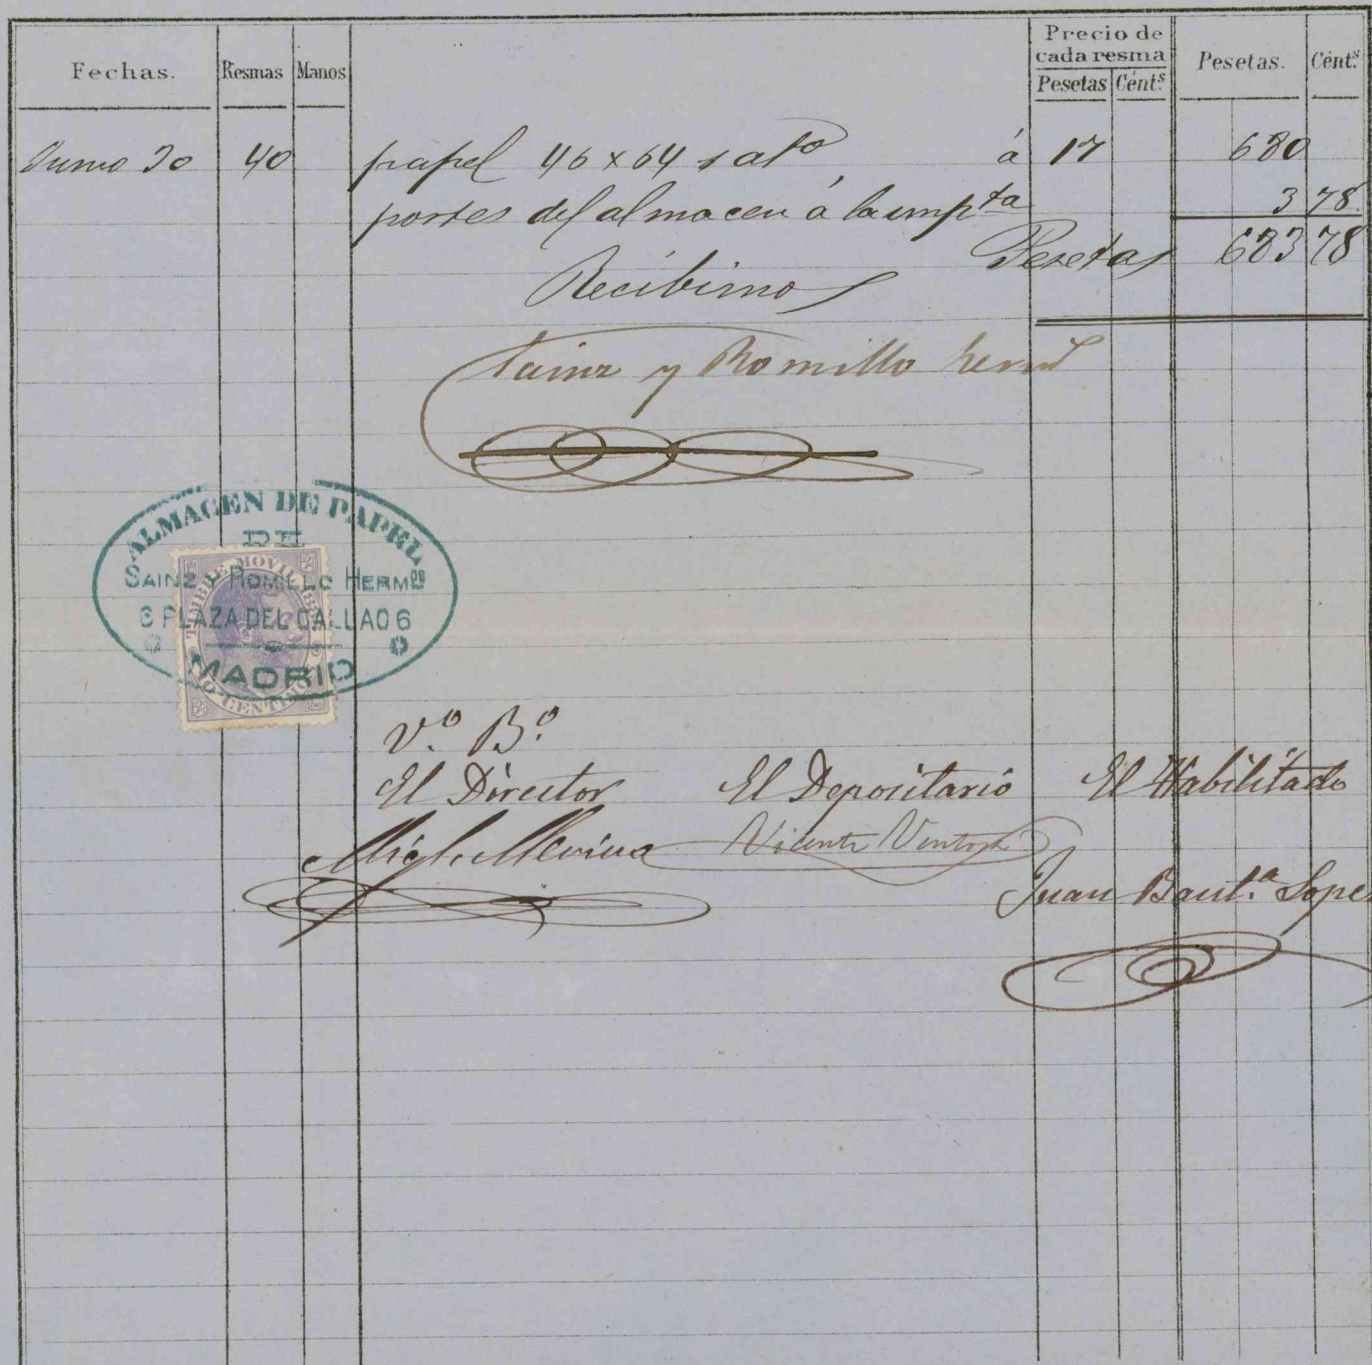 Fechas. Resmas Manos Precio de cada resma Pesetas. Cént.s
Pesetas Cént.s
Junio 30 40 papel 46 x 64 sat.do á 17 680
portes del almacen á la imp.ta 3 78
Pesetas 683 78
Recibimos
Sainz y Romillo herm.s
ALMACEN DE PAPEL
DE
SAINZ Y ROMILLO HERMOS
6 PLAZA DEL CALLAO 6
MADRID
TIMBRE MOVIL
10 CENTIMOS
V.o B.o
El Director El Depositario El Habilitado
Mig.l Vicente
Juan Baut.a Lope